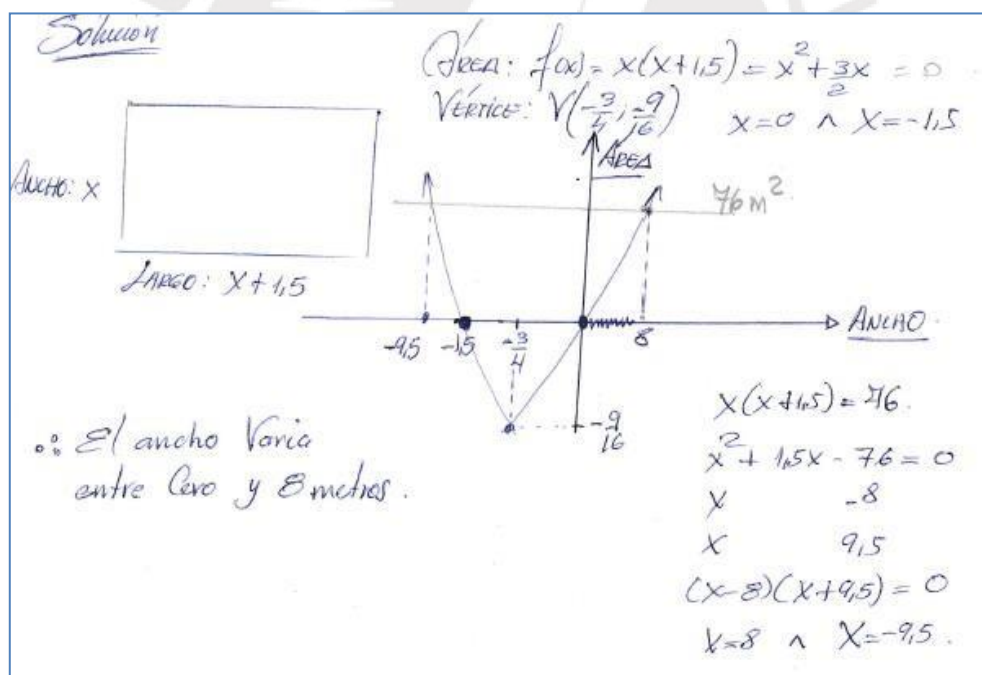 Solución
Área: f(x) = x(x+1,5) = x² + 3x/2 = 0
Vértice: V(-3/4; -9/16) x=0 ∧ x=-1,5
Ancho: x
Largo: x+1,5
Área
76 m²
-9,5 -1,5 -3/4 8
Ancho
-9/16
∴ El ancho Varia
entre Cero y 8 metros.
x(x+1,5) = 76.
x² + 1,5x - 76 = 0
x -8
x 9,5
(x-8)(x+9,5) = 0
x=8 ∧ x=-9,5.